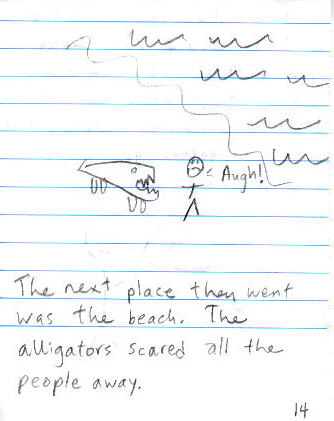 Augh!
The next place they went
was the beach. The
alligators scared all the
people away.
14